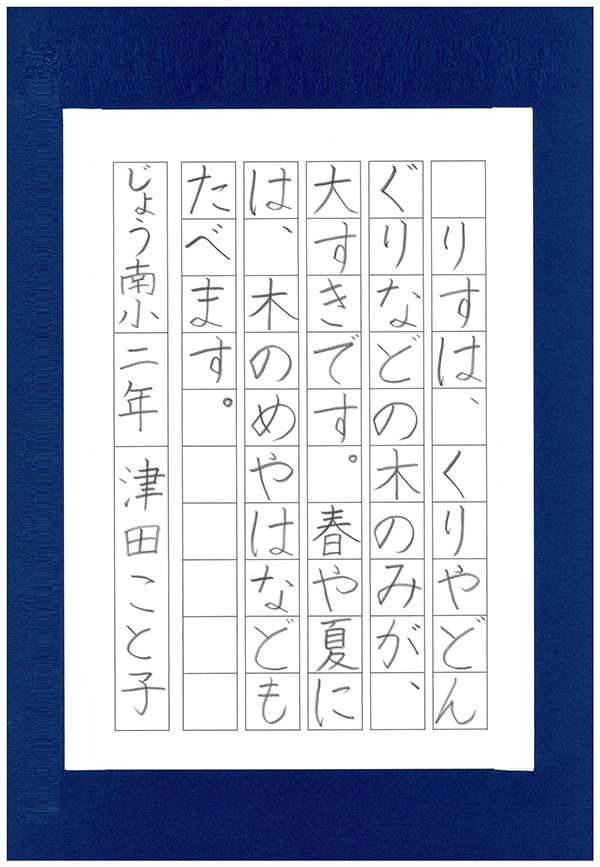 りすは、くりやどん
ぐりなどの木のみが、
大すきです。春や夏に
は、木のめやはなども
たべます。
じょう南小二年津田こと子